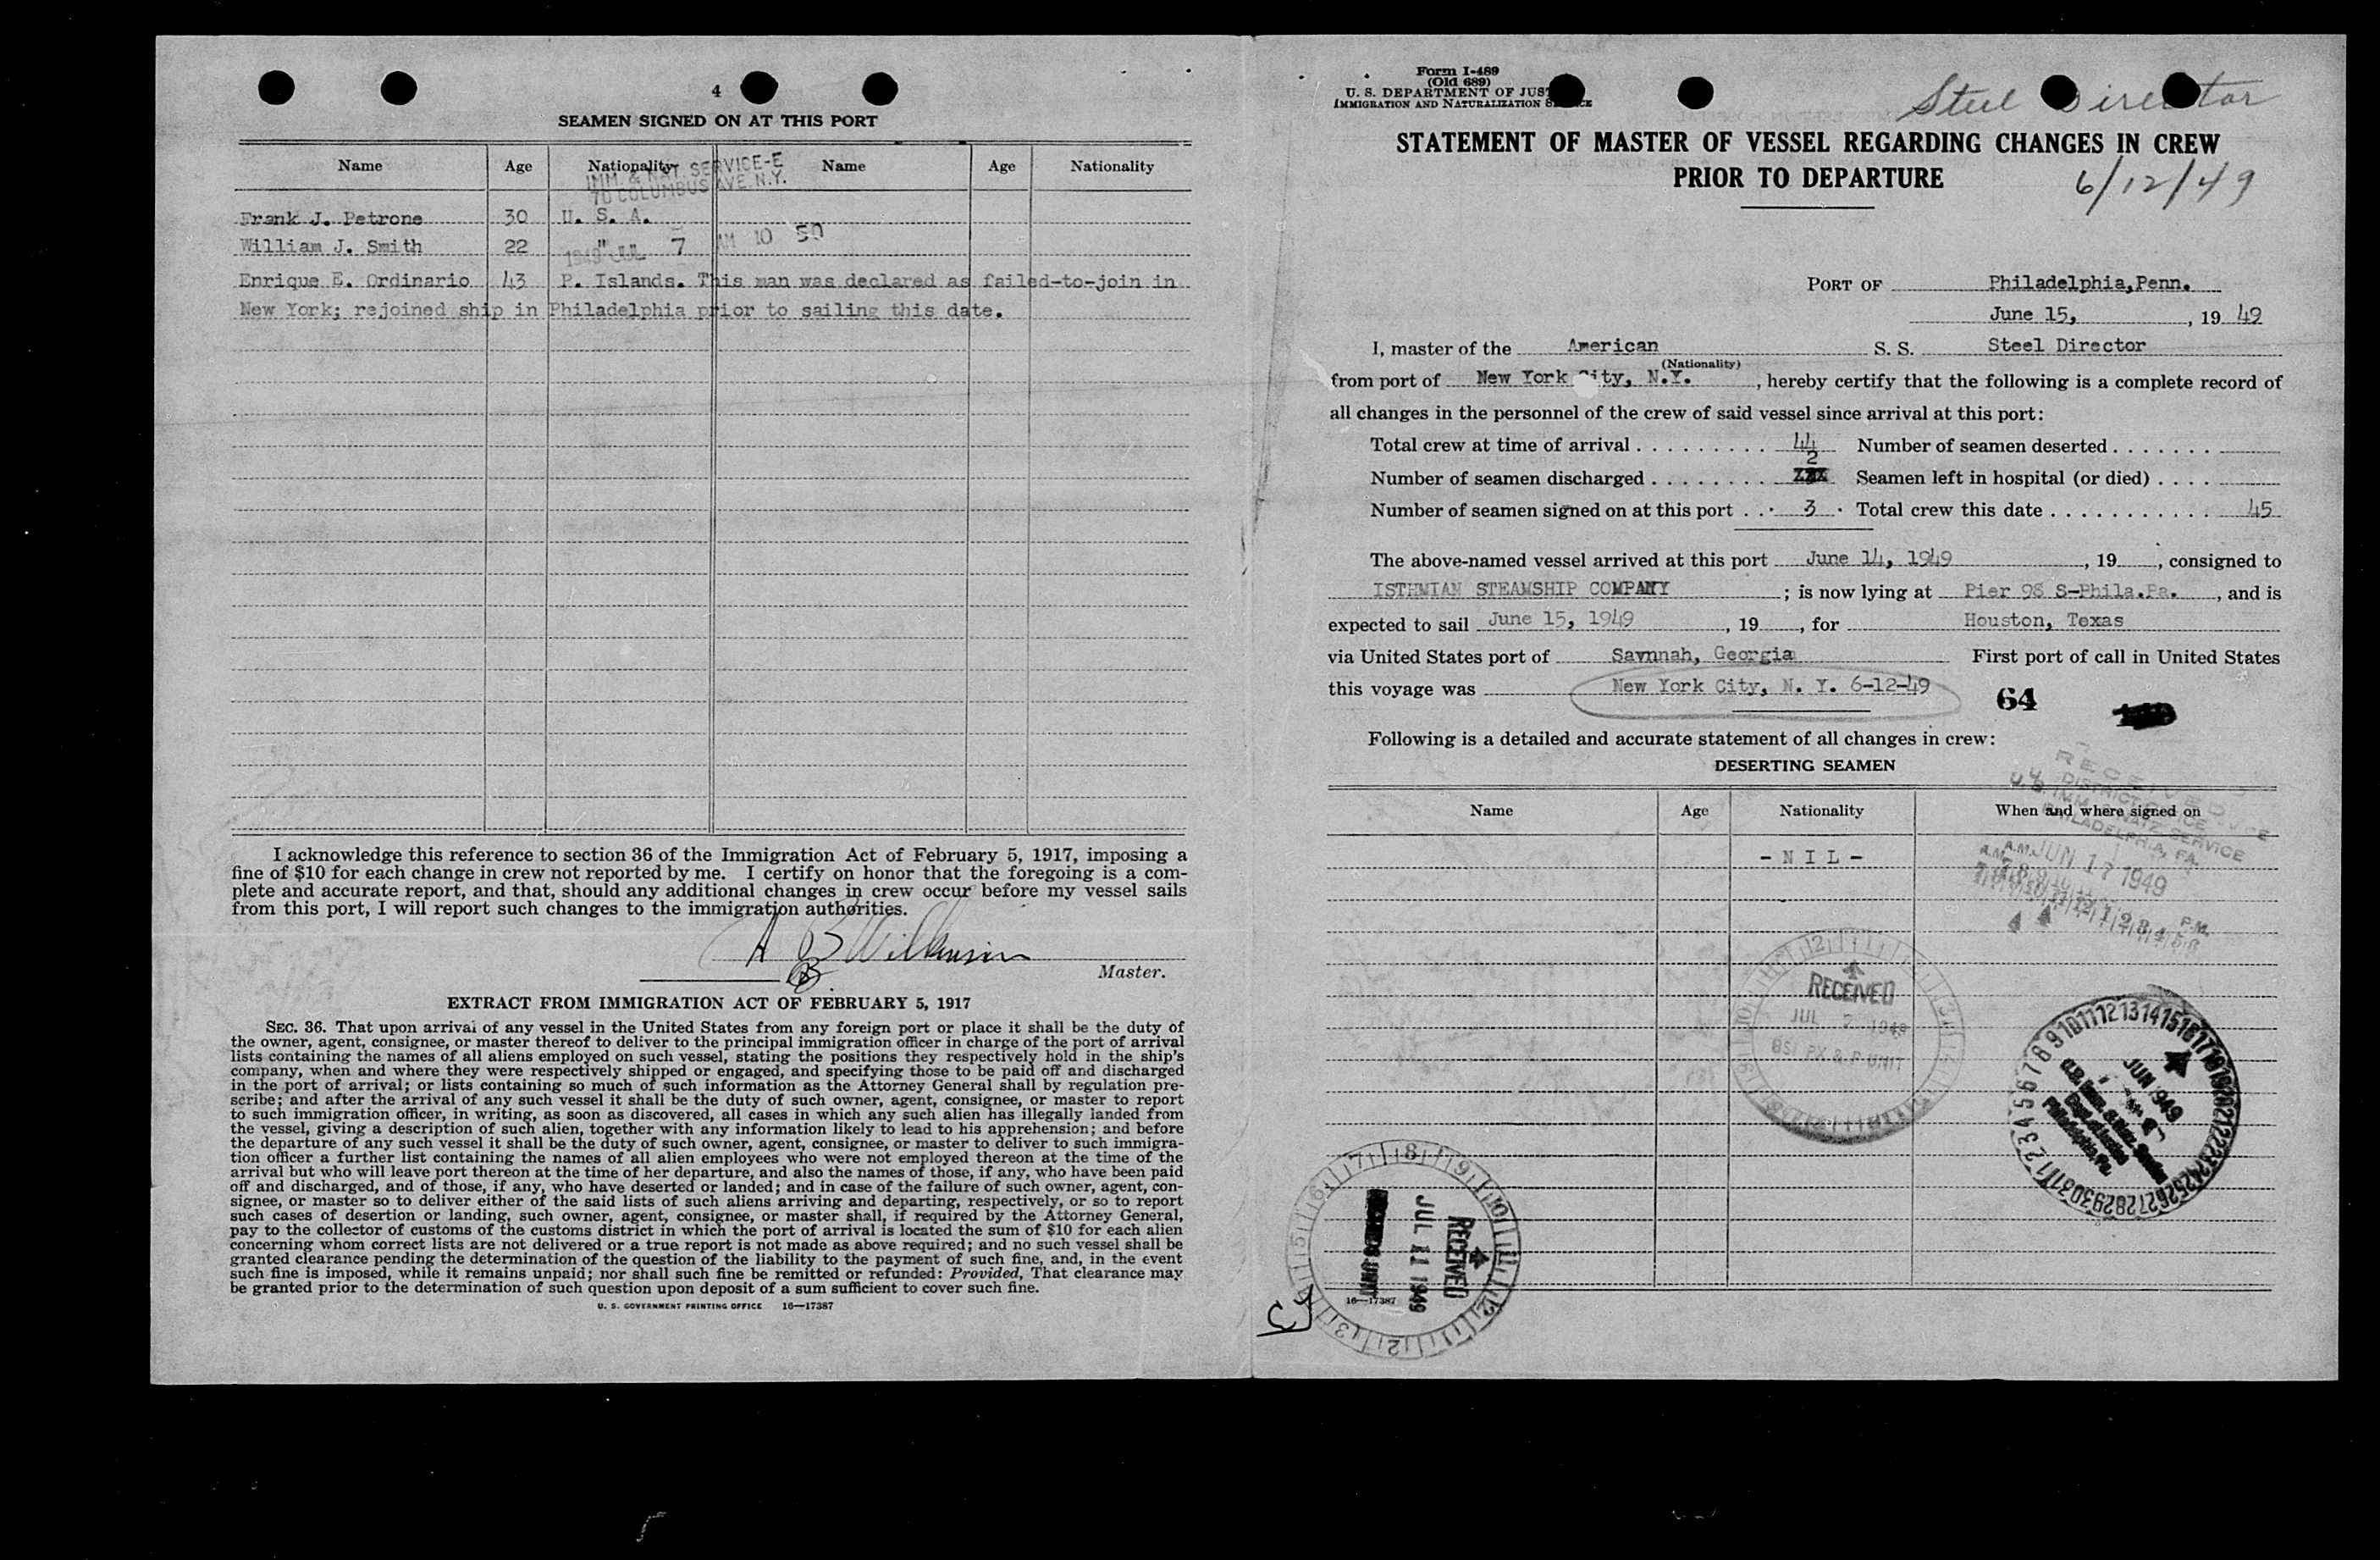 4
SEAMEN SIGNED ON AT THIS PORT
Name Age Nationality Name Age Nationality
IMM. & NAT. SERVICE-E
70 COLUMBUS AVE. N.Y.
Frank J. Petrone 30 U. S. A.
William J. Smith 22 "
1949 JUL 7 AM 10 50
Enrique E. Ordinario 43 P. Islands. This man was declared as failed-to-join in
New York; rejoined ship in Philadelphia prior to sailing this date.
I acknowledge this reference to section 36 of the Immigration Act of February 5, 1917, imposing a
fine of $10 for each change in crew not reported by me. I certify on honor that the foregoing is a com-
plete and accurate report, and that, should any additional changes in crew occur before my vessel sails
from this port, I will report such changes to the immigration authorities.
A B Wilkinson
Master.
EXTRACT FROM IMMIGRATION ACT OF FEBRUARY 5, 1917
SEC. 36. That upon arrival of any vessel in the United States from any foreign port or place it shall be the duty of
the owner, agent, consignee, or master thereof to deliver to the principal immigration officer in charge of the port of arrival
lists containing the names of all aliens employed on such vessel, stating the positions they respectively hold in the ship's
company, when and where they were respectively shipped or engaged, and specifying those to be paid off and discharged
in the port of arrival; or lists containing so much of such information as the Attorney General shall by regulation pre-
scribe; and after the arrival of any such vessel it shall be the duty of such owner, agent, consignee, or master to report
to such immigration officer, in writing, as soon as discovered, all cases in which any such alien has illegally landed from
the vessel, giving a description of such alien, together with any information likely to lead to his apprehension; and before
the departure of any such vessel it shall be the duty of such owner, agent, consignee, or master to deliver to such immigra-
tion officer a further list containing the names of all alien employees who were not employed thereon at the time of the
arrival but who will leave port thereon at the time of her departure, and also the names of those, if any, who have been paid
off and discharged, and of those, if any, who have deserted or landed; and in case of the failure of such owner, agent, con-
signee, or master so to deliver either of the said lists of such aliens arriving and departing, respectively, or so to report
such cases of desertion or landing, such owner, agent, consignee, or master shall, if required by the Attorney General,
pay to the collector of customs of the customs district in which the port of arrival is located the sum of $10 for each alien
concerning whom correct lists are not delivered or a true report is not made as above required; and no such vessel shall be
granted clearance pending the determination of the question of the liability to the payment of such fine, and, in the event
such fine is imposed, while it remains unpaid; nor shall such fine be remitted or refunded: Provided, That clearance may
be granted prior to the determination of such question upon deposit of a sum sufficient to cover such fine.
U. S. GOVERNMENT PRINTING OFFICE 16—17387
Form I-489
(Old 689)
U. S. DEPARTMENT OF JUS
IMMIGRATION AND NATURALIZATION S CE
Steel Director
STATEMENT OF MASTER OF VESSEL REGARDING CHANGES IN CREW
PRIOR TO DEPARTURE
6/12/49
PORT OF Philadelphia,Penn.
June 15, , 19 49
I, master of the American S. S. Steel Director
(Nationality)
from port of New York City, N.Y. , hereby certify that the following is a complete record of
all changes in the personnel of the crew of said vessel since arrival at this port:
Total crew at time of arrival . . . . . . . . . 44 Number of seamen deserted . . . . . . .
Number of seamen discharged . . . . . . . . 2 Seamen left in hospital (or died) . . . .
Number of seamen signed on at this port . . . 3 . Total crew this date . . . . . . . . . . . 45
The above-named vessel arrived at this port June 14, 1949 , 19 , consigned to
ISTHMIAN STEAMSHIP COMPANY ; is now lying at Pier 98 S-Phila.Pa. , and is
expected to sail June 15, 1949 , 19 , for Houston, Texas
via United States port of Savnnah, Georgia First port of call in United States
this voyage was New York City, N. Y. 6-12-49
64
Following is a detailed and accurate statement of all changes in crew:
DESERTING SEAMEN
Name Age Nationality When and where signed on
- N I L -
RECEIVED
DISTRICT OFFICE
PHILADELPHIA, PA.
A.M. JUN 17 1949 P.M.
RECEIVED
JUL 7 1949
BSI PX & P UNIT
JUN 1949
U.S. Imm. & Natz. Service
Philadelphia, Pa.
RECEIVED
JUL 11 1949
16—17387